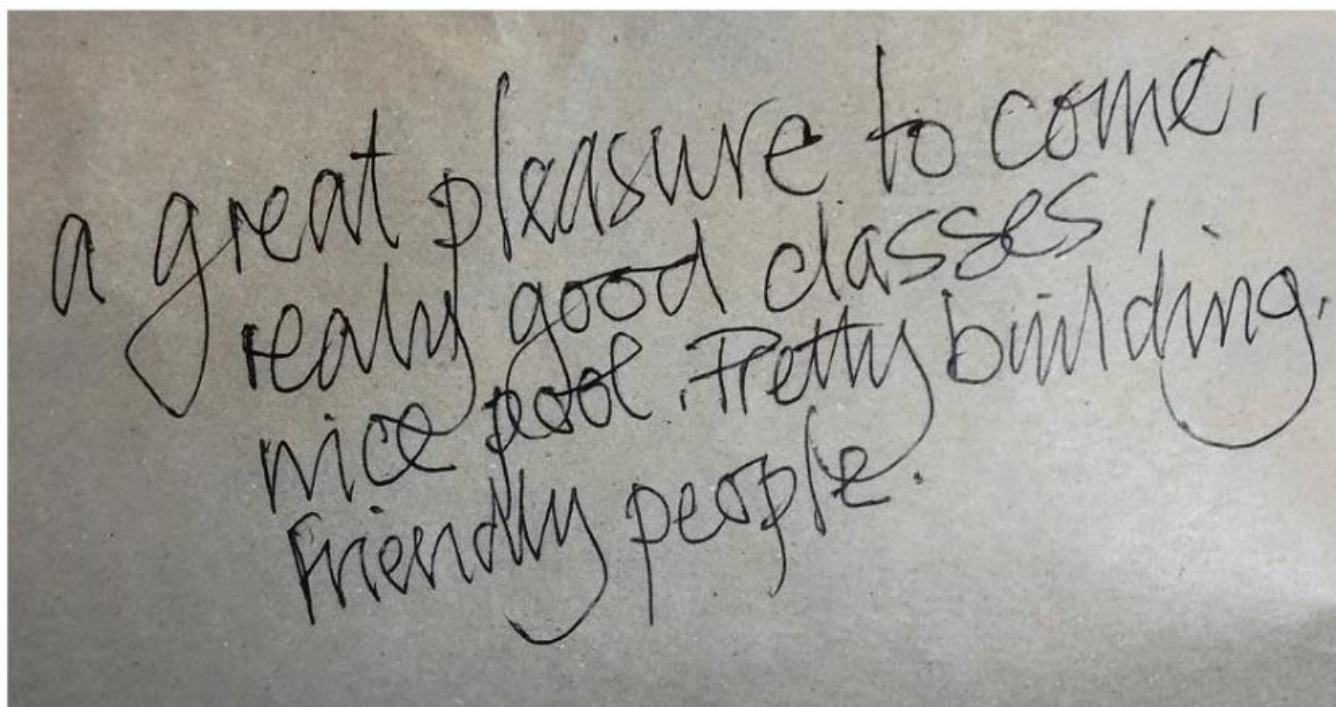 a great pleasure to come.
really good classes,
nice pool. Pretty building.
Friendly people.